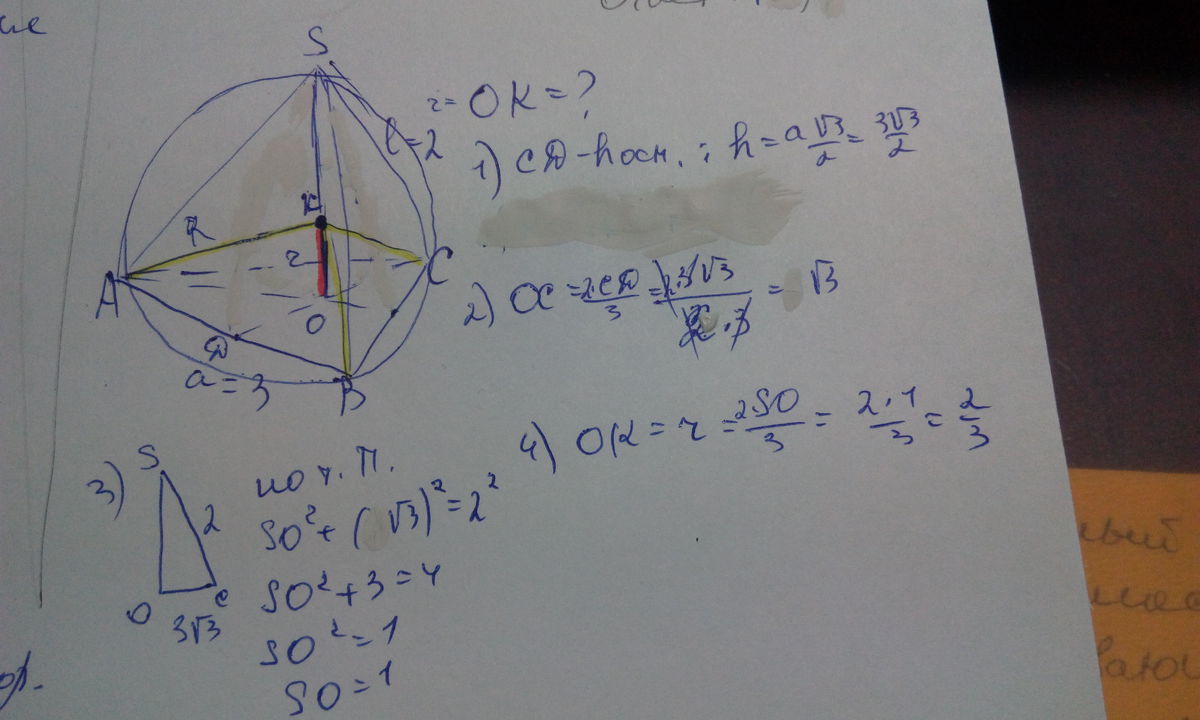 ие
S
r = OK = ?
l = 2
1) СД - h осн. ; h = a√3/2 = 3√3/2
K
R
r
A
C
O
Д
a = 3
B
2) OC = 2·СД/3 = 2·3√3/2·3 = √3
3)
S
2
O
C
3√3
по т. П.
SO² + (√3)² = 2²
SO² + 3 = 4
SO² = 1
SO = 1
4) OK = r = 2SO/3 = 2·1/3 = 2/3